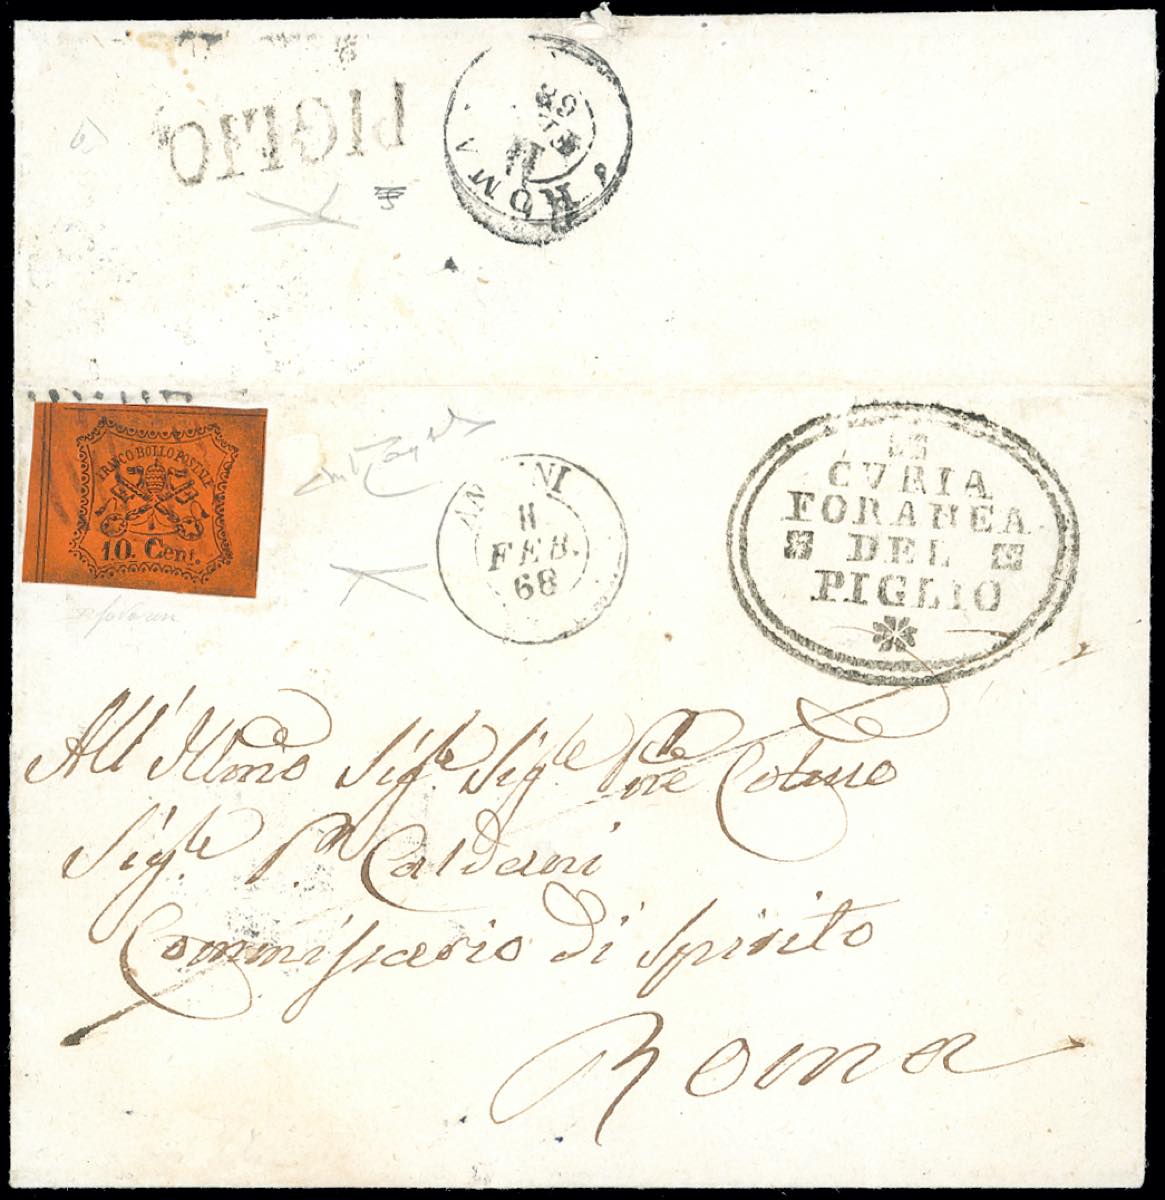 PIGLIO
ROMA
11
FEB
68
FRANCO BOLLO POSTALE
10. Cent.
ANAGNI
11
FEB.
68
CVRIA
FORANEA
DEL
PIGLIO
All' Illmo Sigre Sigre Pre Colmo
Sigre Pn Caldani
Commissario di Spirito
Roma